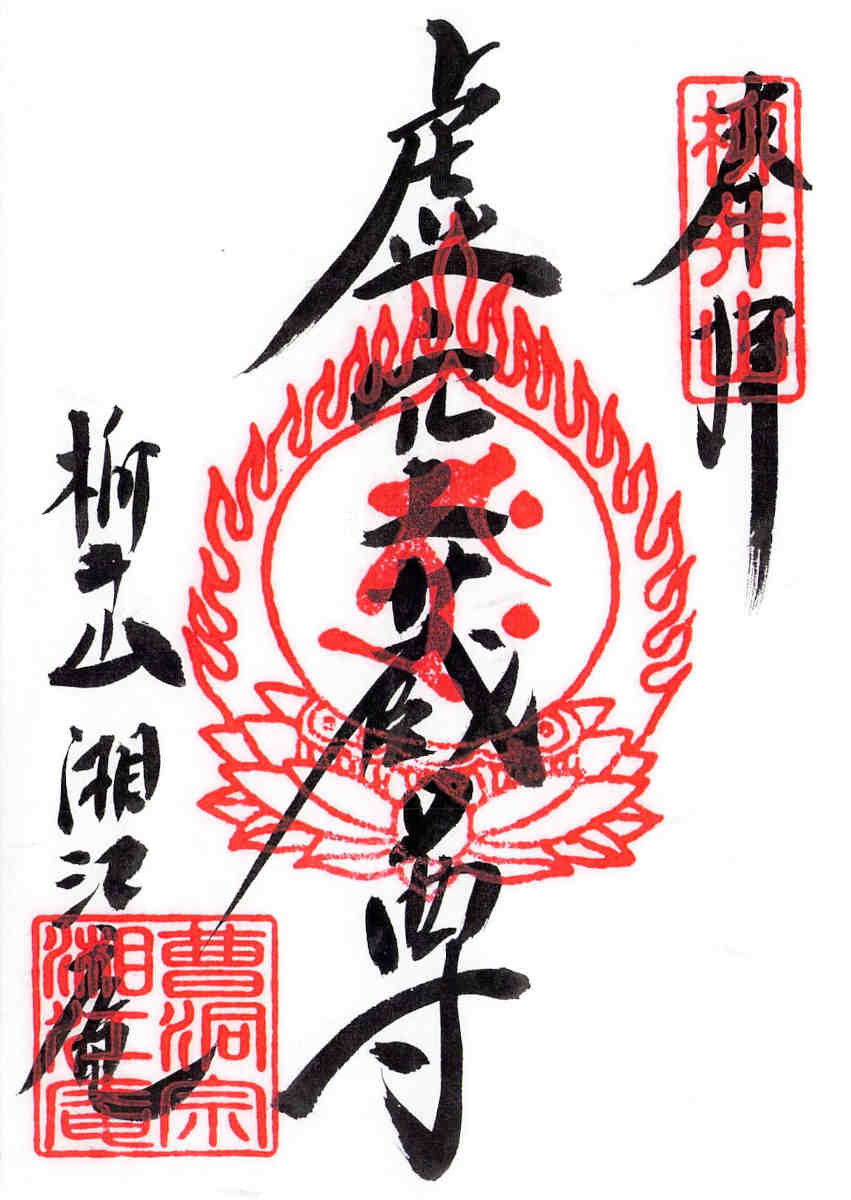 奉拝
柳井山
虚空蔵尊
柳井山 湘江庵
曹洞宗
湘江庵